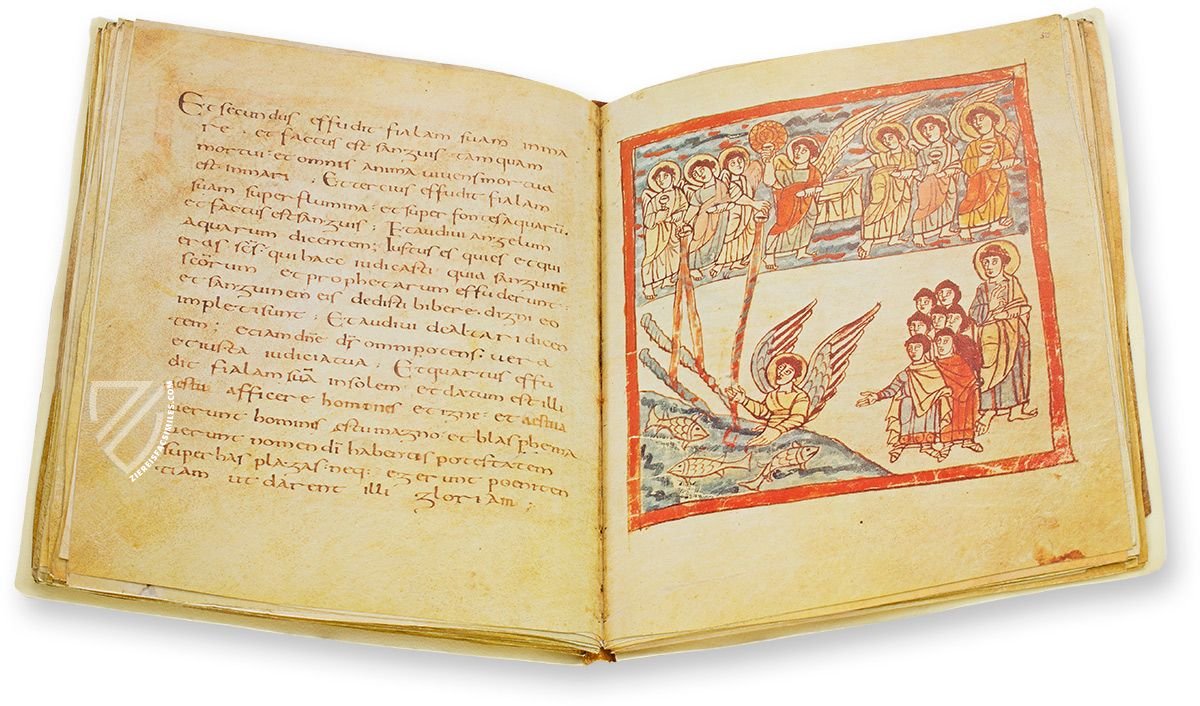 Et secundus effudit fialam suam inma
re · et factus est sanguis · tamquam
mortui · et omnis anima vivens mortua
est in mari · Et tertius effudit fialam
suam super flumina · et super fontes aquarū ·
et factus est sanguis · Et audivi angelum
aquarum dicentem · Iustus es qui es et qui
eras · sc̄s · qui haec iudicasti quia sanguinē
sc̄orum et prophetarum effuderunt ·
et sanguinem eis dedisti bibere · digni eo
impleti sunt · Et audivi de altari dicen
tem · etiam dn̄e dī omnipotens · vera
et iusta iudicia tua · Et quartus effu
dit fialam suā in solem · et datum est illi
aestu afficere homines et igne · et aestua
verunt homines estu magno · et blasphema
verunt nomen dī habentis potestatem
super has plagas · neq: egerunt poeniten
tiam ut darent illi gloriam ·
ZIEREISFACSIMILES.COM